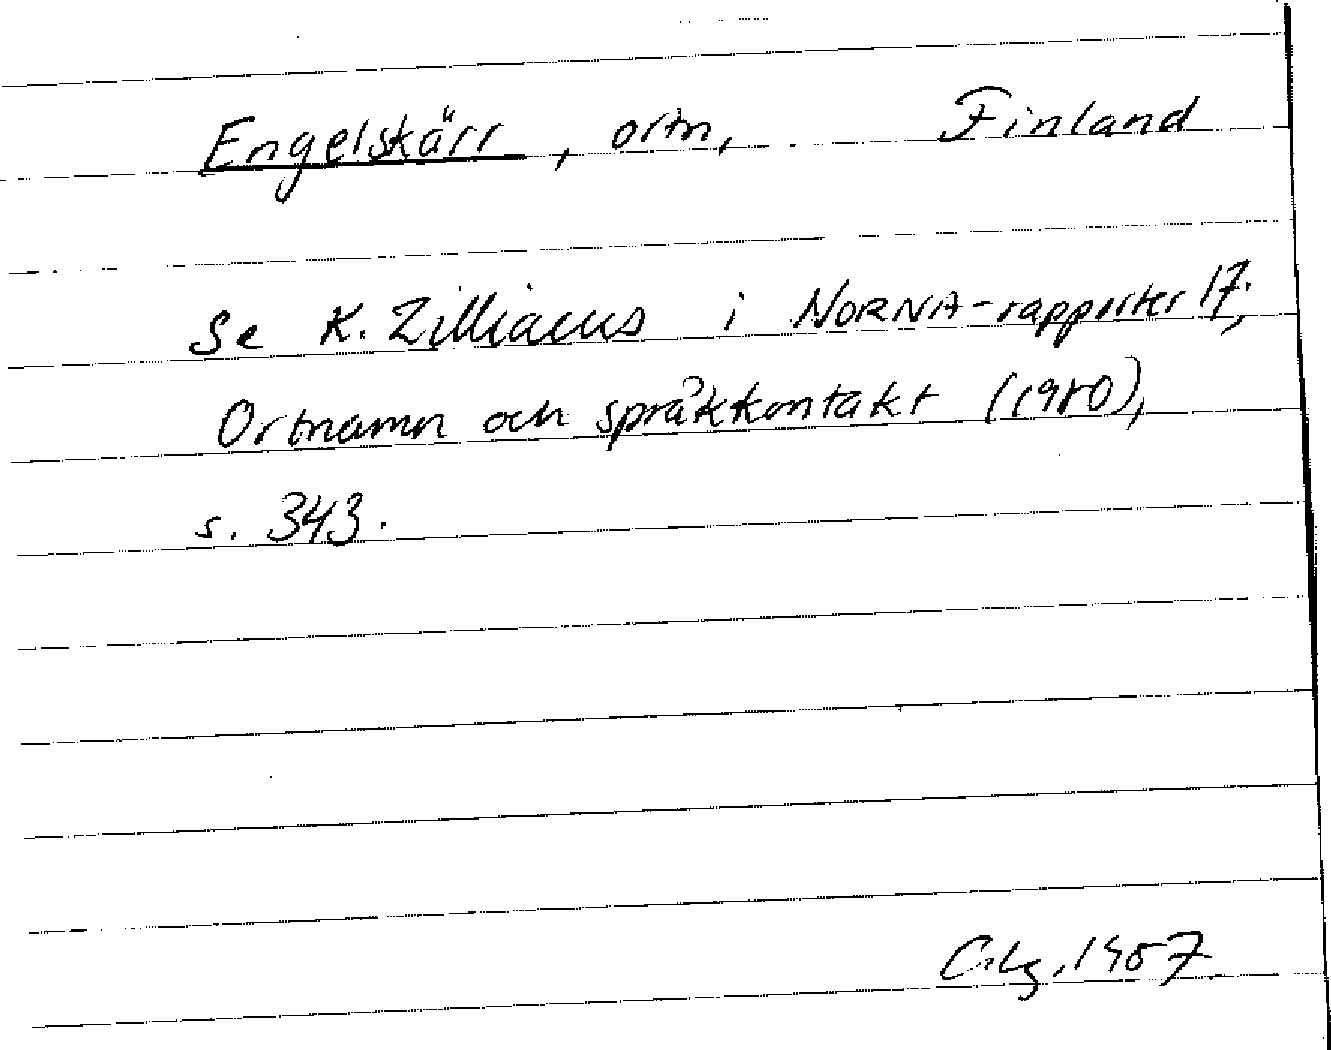 Engelskärr, ortn, Finland
Se K. Zilliacus i NORNA-rapporter 17;
Ortnamn och språkkontakt (1980),
s. 343.
1987